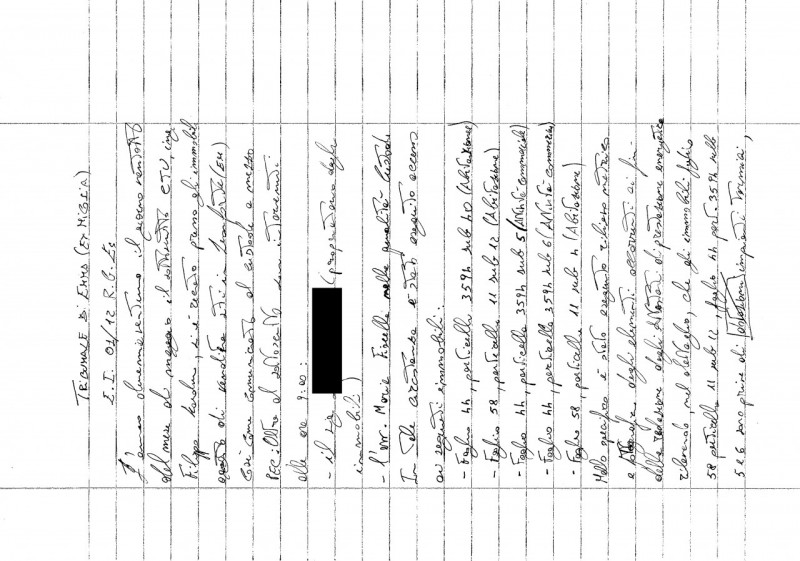 TRIBUNALE DI ENNA (EX NICOSIA)
E.I. 01/12 R.G.Es
L'anno duemilaventuno il giorno ventotto
del mese di maggio il sottoscritto CTU, ing.
Filippo, si è recato presso gli immobili
oggetto di vendita siti in Leonforte (EN)
così come comunicato al custode a mezzo
PEC. Oltre al sottoscritto sono intervenuti
alle ore 9:00:
- il sig. (proprietario degli
immobili)
- l'avv. Maria Fiorella nella qualità custode
In tale circostanza è stato eseguito accesso
ai seguenti immobili:
- Foglio 44, particella 3594 sub 40 (Abitazione)
- Foglio 58, particella 11 sub 12 (Abitazione)
- Foglio 44, particella 3594 sub 5 (Attività commerciale)
- Foglio 44, particella 3594 sub 6 (Attività commerciale)
- Foglio 58, particella 11 sub 4 (Abitazione)
Nello specifico è stato eseguito rilievo metrico
e degli elementi occorrenti ai fini
della redazione degli attestati di prestazione energetica
rilevando, nel dettaglio, che gli immobili foglio
58 particella 11 sub 12, foglio 44 part. 3594 sub
5 e 6 sono prive di impianti termici,